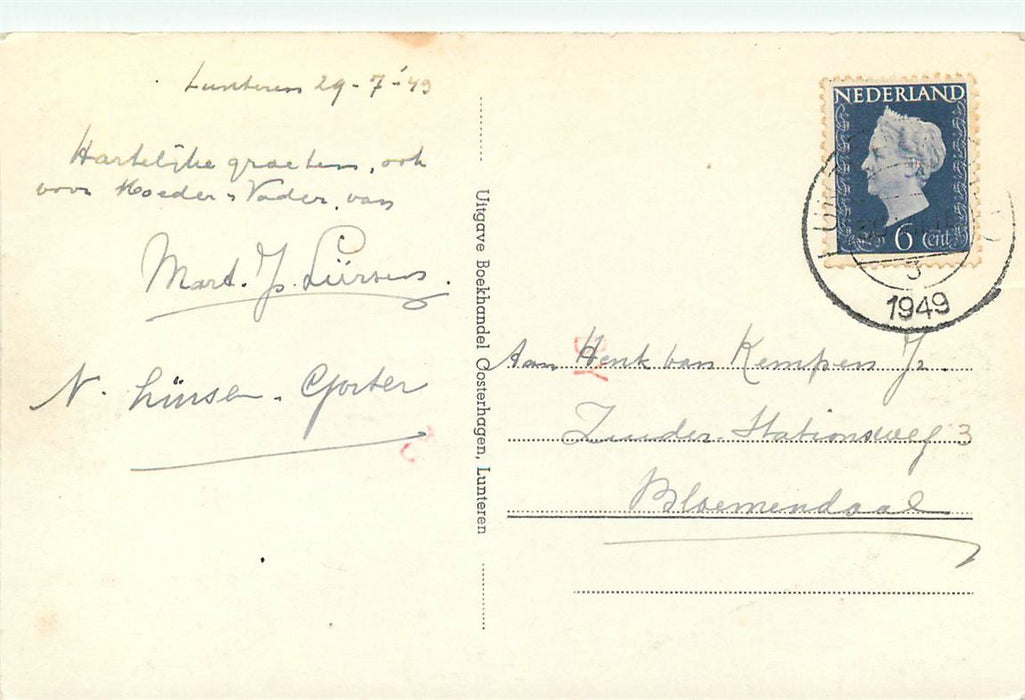 Lunteren 29-7-'49
Hartelijke groeten, ook
voor Moeder + Vader, van
Mart. Jz. Lürsens.
N. Lürsen - Gorter
Uitgave Boekhandel Oosterhagen, Lunteren
NEDERLAND
6 Cent
3
1949
Aan Henk van Kempen Jr.
Zuider Stationsweg 3
Bloemendaal